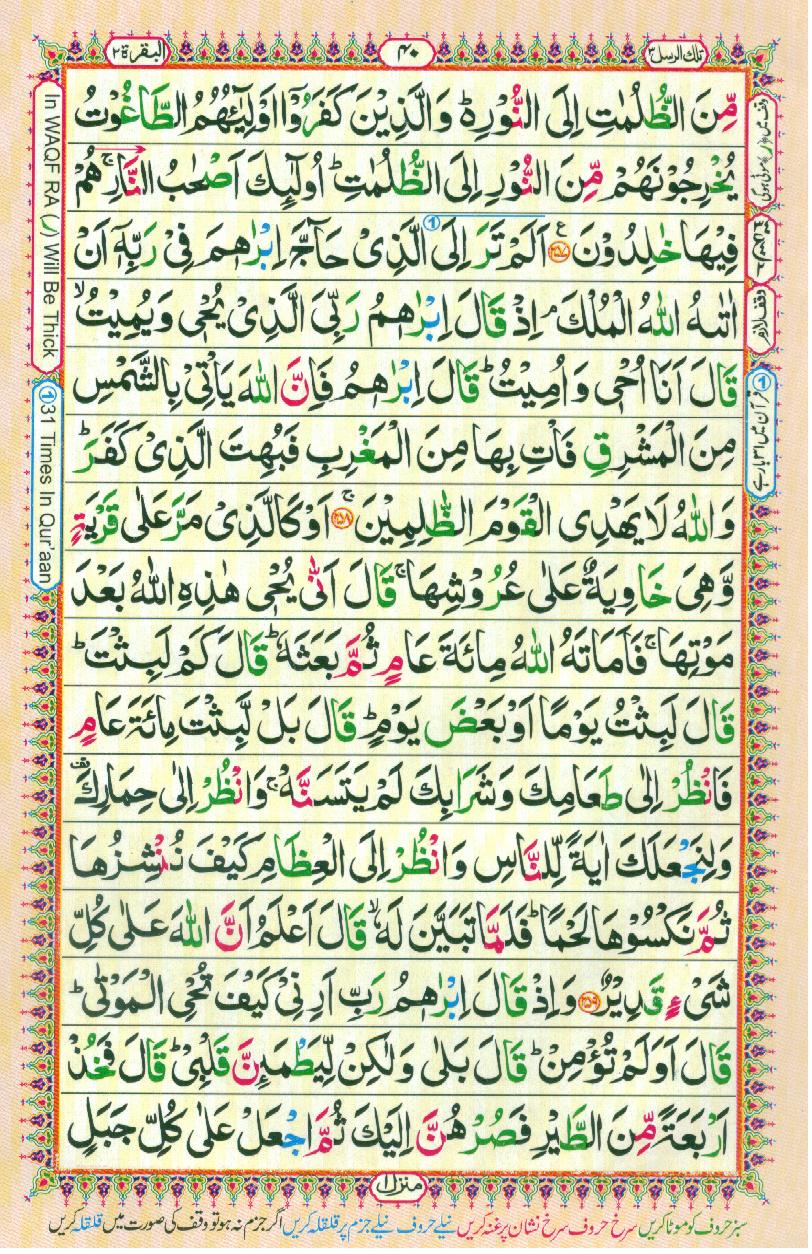 تلك الرسل ٣
٤٠
البقرة ٢
مِّنَ الظُّلُمٰتِ اِلَى النُّوْرِ۬ؕ وَالَّذِيْنَ كَفَرُوْۤا اَوْلِيٰٓئُهُمُ الطَّاغُوْتُ
يُخْرِجُوْنَهُمْ مِّنَ النُّوْرِ اِلَى الظُّلُمٰتِؕ اُولٰٓئِكَ اَصْحٰبُ النَّارِۚ هُمْ
فِيْهَا خٰلِدُوْنَ ﴿٢٥٧﴾ ع اَلَمْ تَرَ ① اِلَى الَّذِيْ حَآجَّ اِبْرٰهٖمَ فِيْ رَبِّهٖٓ اَنْ
اٰتٰىهُ اللّٰهُ الْمُلْكَۘ اِذْ قَالَ اِبْرٰهٖمُ رَبِّيَ الَّذِيْ يُحْيٖ وَيُمِيْتُۙ
قَالَ اَنَا اُحْيٖ وَاُمِيْتُؕ قَالَ اِبْرٰهٖمُ فَاِنَّ اللّٰهَ يَاْتِيْ بِالشَّمْسِ
مِنَ الْمَشْرِقِ فَاْتِ بِهَا مِنَ الْمَغْرِبِ فَبُهِتَ الَّذِيْ كَفَرَؕ
وَاللّٰهُ لَا يَهْدِي الْقَوْمَ الظّٰلِمِيْنَۚ ﴿٢٥٨﴾ اَوْ كَالَّذِيْ مَرَّ عَلٰى قَرْيَةٍ
وَّهِيَ خَاوِيَةٌ عَلٰى عُرُوْشِهَاۚ قَالَ اَنّٰى يُحْيٖ هٰذِهِ اللّٰهُ بَعْدَ
مَوْتِهَاۚ فَاَمَاتَهُ اللّٰهُ مِائَةَ عَامٍ ثُمَّ بَعَثَهٗؕ قَالَ كَمْ لَبِثْتَؕ
قَالَ لَبِثْتُ يَوْمًا اَوْ بَعْضَ يَوْمٍؕ قَالَ بَلْ لَّبِثْتَ مِائَةَ عَامٍ
فَانْظُرْ اِلٰى طَعَامِكَ وَشَرَابِكَ لَمْ يَتَسَنَّهْۚ وَانْظُرْ اِلٰى حِمَارِكَ
وَلِنَجْعَلَكَ اٰيَةً لِّلنَّاسِ وَانْظُرْ اِلَى الْعِظَامِ كَيْفَ نُنْشِزُهَا
ثُمَّ نَكْسُوْهَا لَحْمًاؕ فَلَمَّا تَبَيَّنَ لَهٗۙ قَالَ اَعْلَمُ اَنَّ اللّٰهَ عَلٰى كُلِّ
شَيْءٍ قَدِيْرٌ ﴿٢٥٩﴾ وَاِذْ قَالَ اِبْرٰهٖمُ رَبِّ اَرِنِيْ كَيْفَ تُحْيِ الْمَوْتٰىؕ
قَالَ اَوَلَمْ تُؤْمِنْؕ قَالَ بَلٰى وَلٰكِنْ لِّيَطْمَئِنَّ قَلْبِيْؕ قَالَ فَخُذْ
اَرْبَعَةً مِّنَ الطَّيْرِ فَصُرْهُنَّ اِلَيْكَ ثُمَّ اجْعَلْ عَلٰى كُلِّ جَبَلٍ
منزل ١
In WAQF RA (ر) Will Be Thick
① 31 Times In Qur'aan
وقف میں (ر) موٹی ہوگی
وقف لازم
① قرآن میں ۳۱ بار ہے
سبز حروف کو موٹا کریں سرخ حروف سرخ نشان پر غنہ کریں نیلے حروف نیلے جزم پر قلقلہ کریں اگر جزم نہ ہو تو وقف کی صورت میں قلقلہ کریں